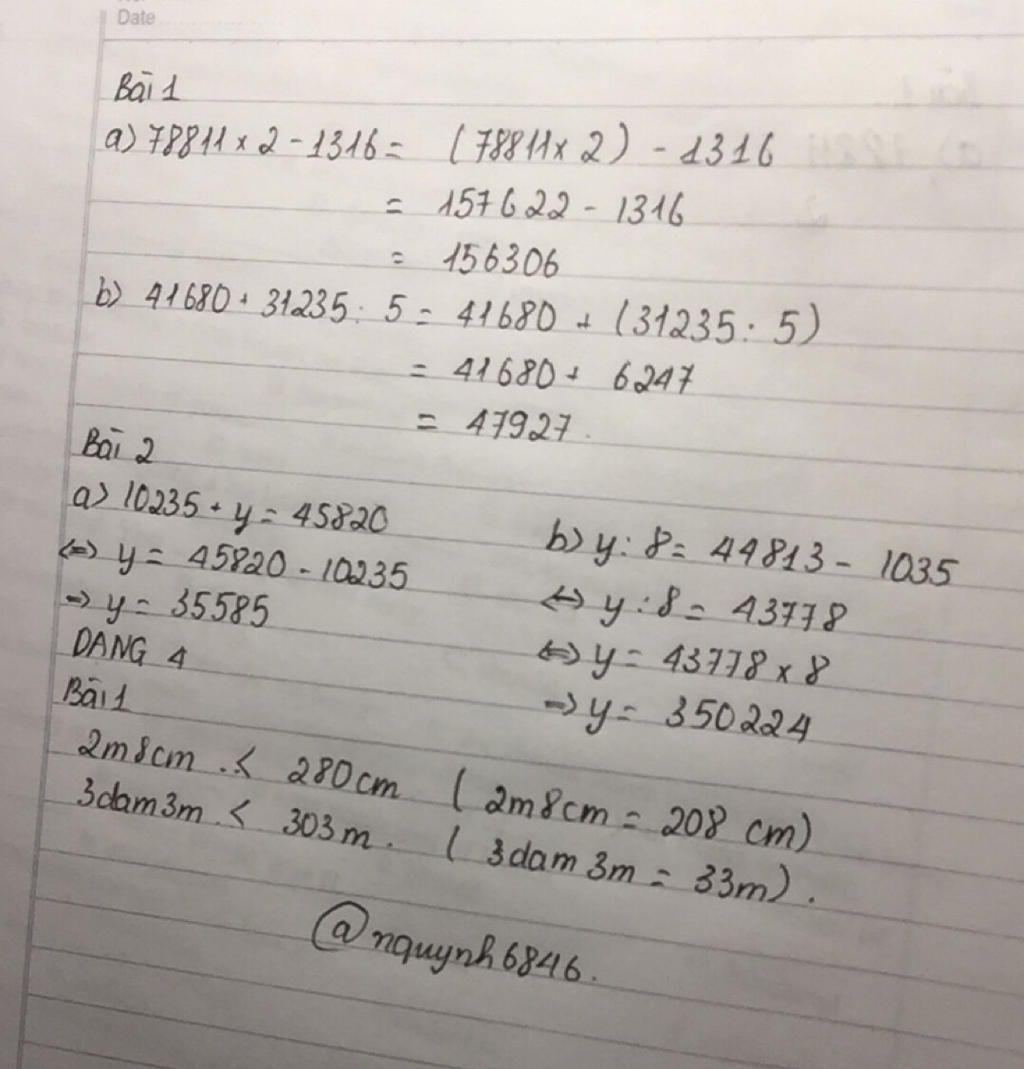 Date
Bài 1
a) 78811 x 2 - 1316 = (78811 x 2) - 1316
= 157622 - 1316
= 156306
b) 41680 + 31235 : 5 = 41680 + (31235 : 5)
= 41680 + 6247
= 47927.
Bài 2
a) 10235 + y = 45820
<=> y = 45820 - 10235
=> y = 35585
b) y : 8 = 44813 - 1035
<=> y : 8 = 43778
<=> y = 43778 x 8
=> y = 350224
DANG 4
Bài 1
2m8cm .< 280cm ( 2m8cm = 208 cm)
3dam3m .< 303m. ( 3dam3m = 33m).
@nquynh6846.